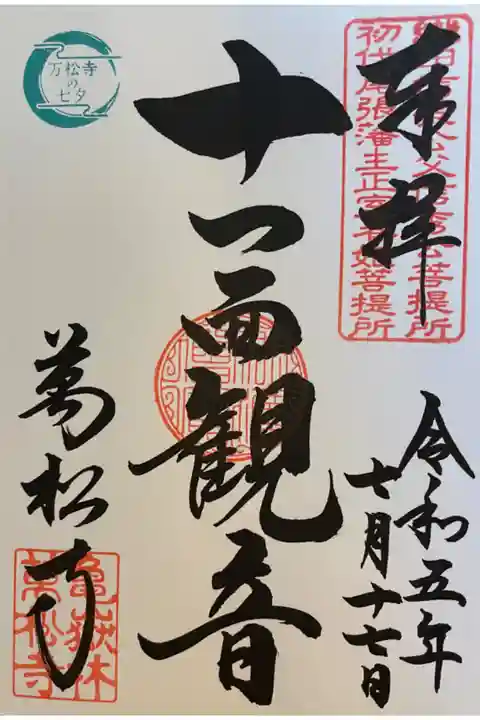 奉拝
織田信長公父信秀公菩提所
初代尾張藩主正室春姫菩提所
令和五年
七月十七日
十一面観音
万松寺
の
七夕
萬松寺
亀嶽林
萬松寺